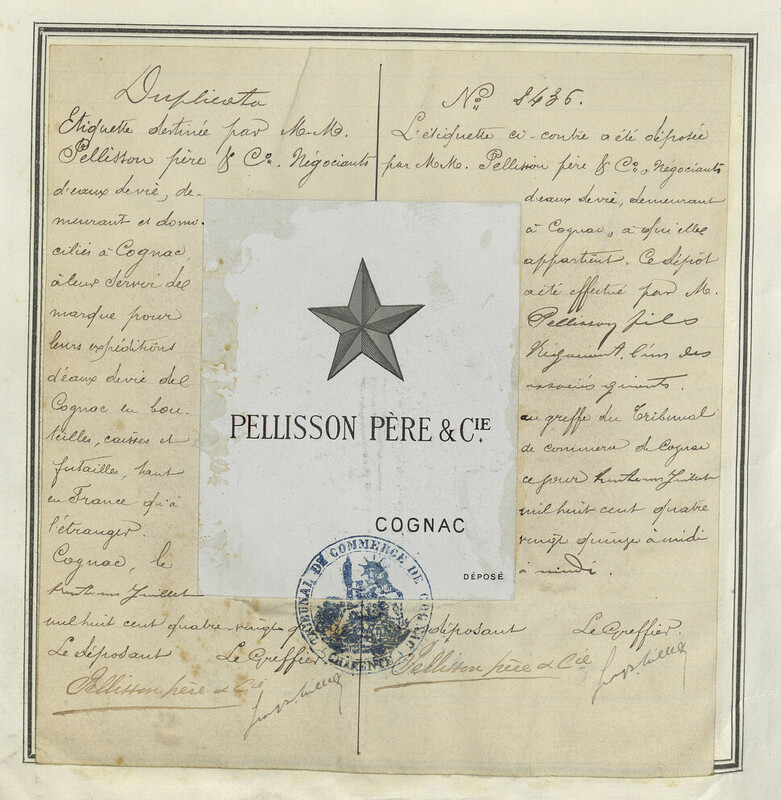 Duplicata
Etiquette destinée par M.M.
Pellisson père & Co. Négociants
d'eaux de vie, de-
meurant et domi-
ciliés à Cognac,
à leur servir de
marque pour
leurs expéditions
d'eaux de vie de
Cognac en bou-
teilles, caisses et
futailles, tant
en France qu'à
l'étranger.
Cognac, le
Juillet
mil huit cent quatre-vingt
Le déposant Le Greffier
Pellisson père & Cie
No 8436.
L'étiquette ci-contre a été déposée
par M.M. Pellisson père & Co, Négociants
d'eaux de vie, demeurant
à Cognac, à qui elle
appartient. Ce dépôt
a été effectué par M.
Pellisson fils
l'un des
associés gérants.
au greffe du Tribunal
de commerce de Cognac
ce jour Juillet
mil huit cent quatre
vingt quinze à midi
à midi.
déposant Le Greffier.
Pellisson père & Cie
PELLISSON PÈRE & CIE.
COGNAC
DÉPOSÉ
TRIBUNAL DE COMMERCE DE COGNAC
(CHARENTE)